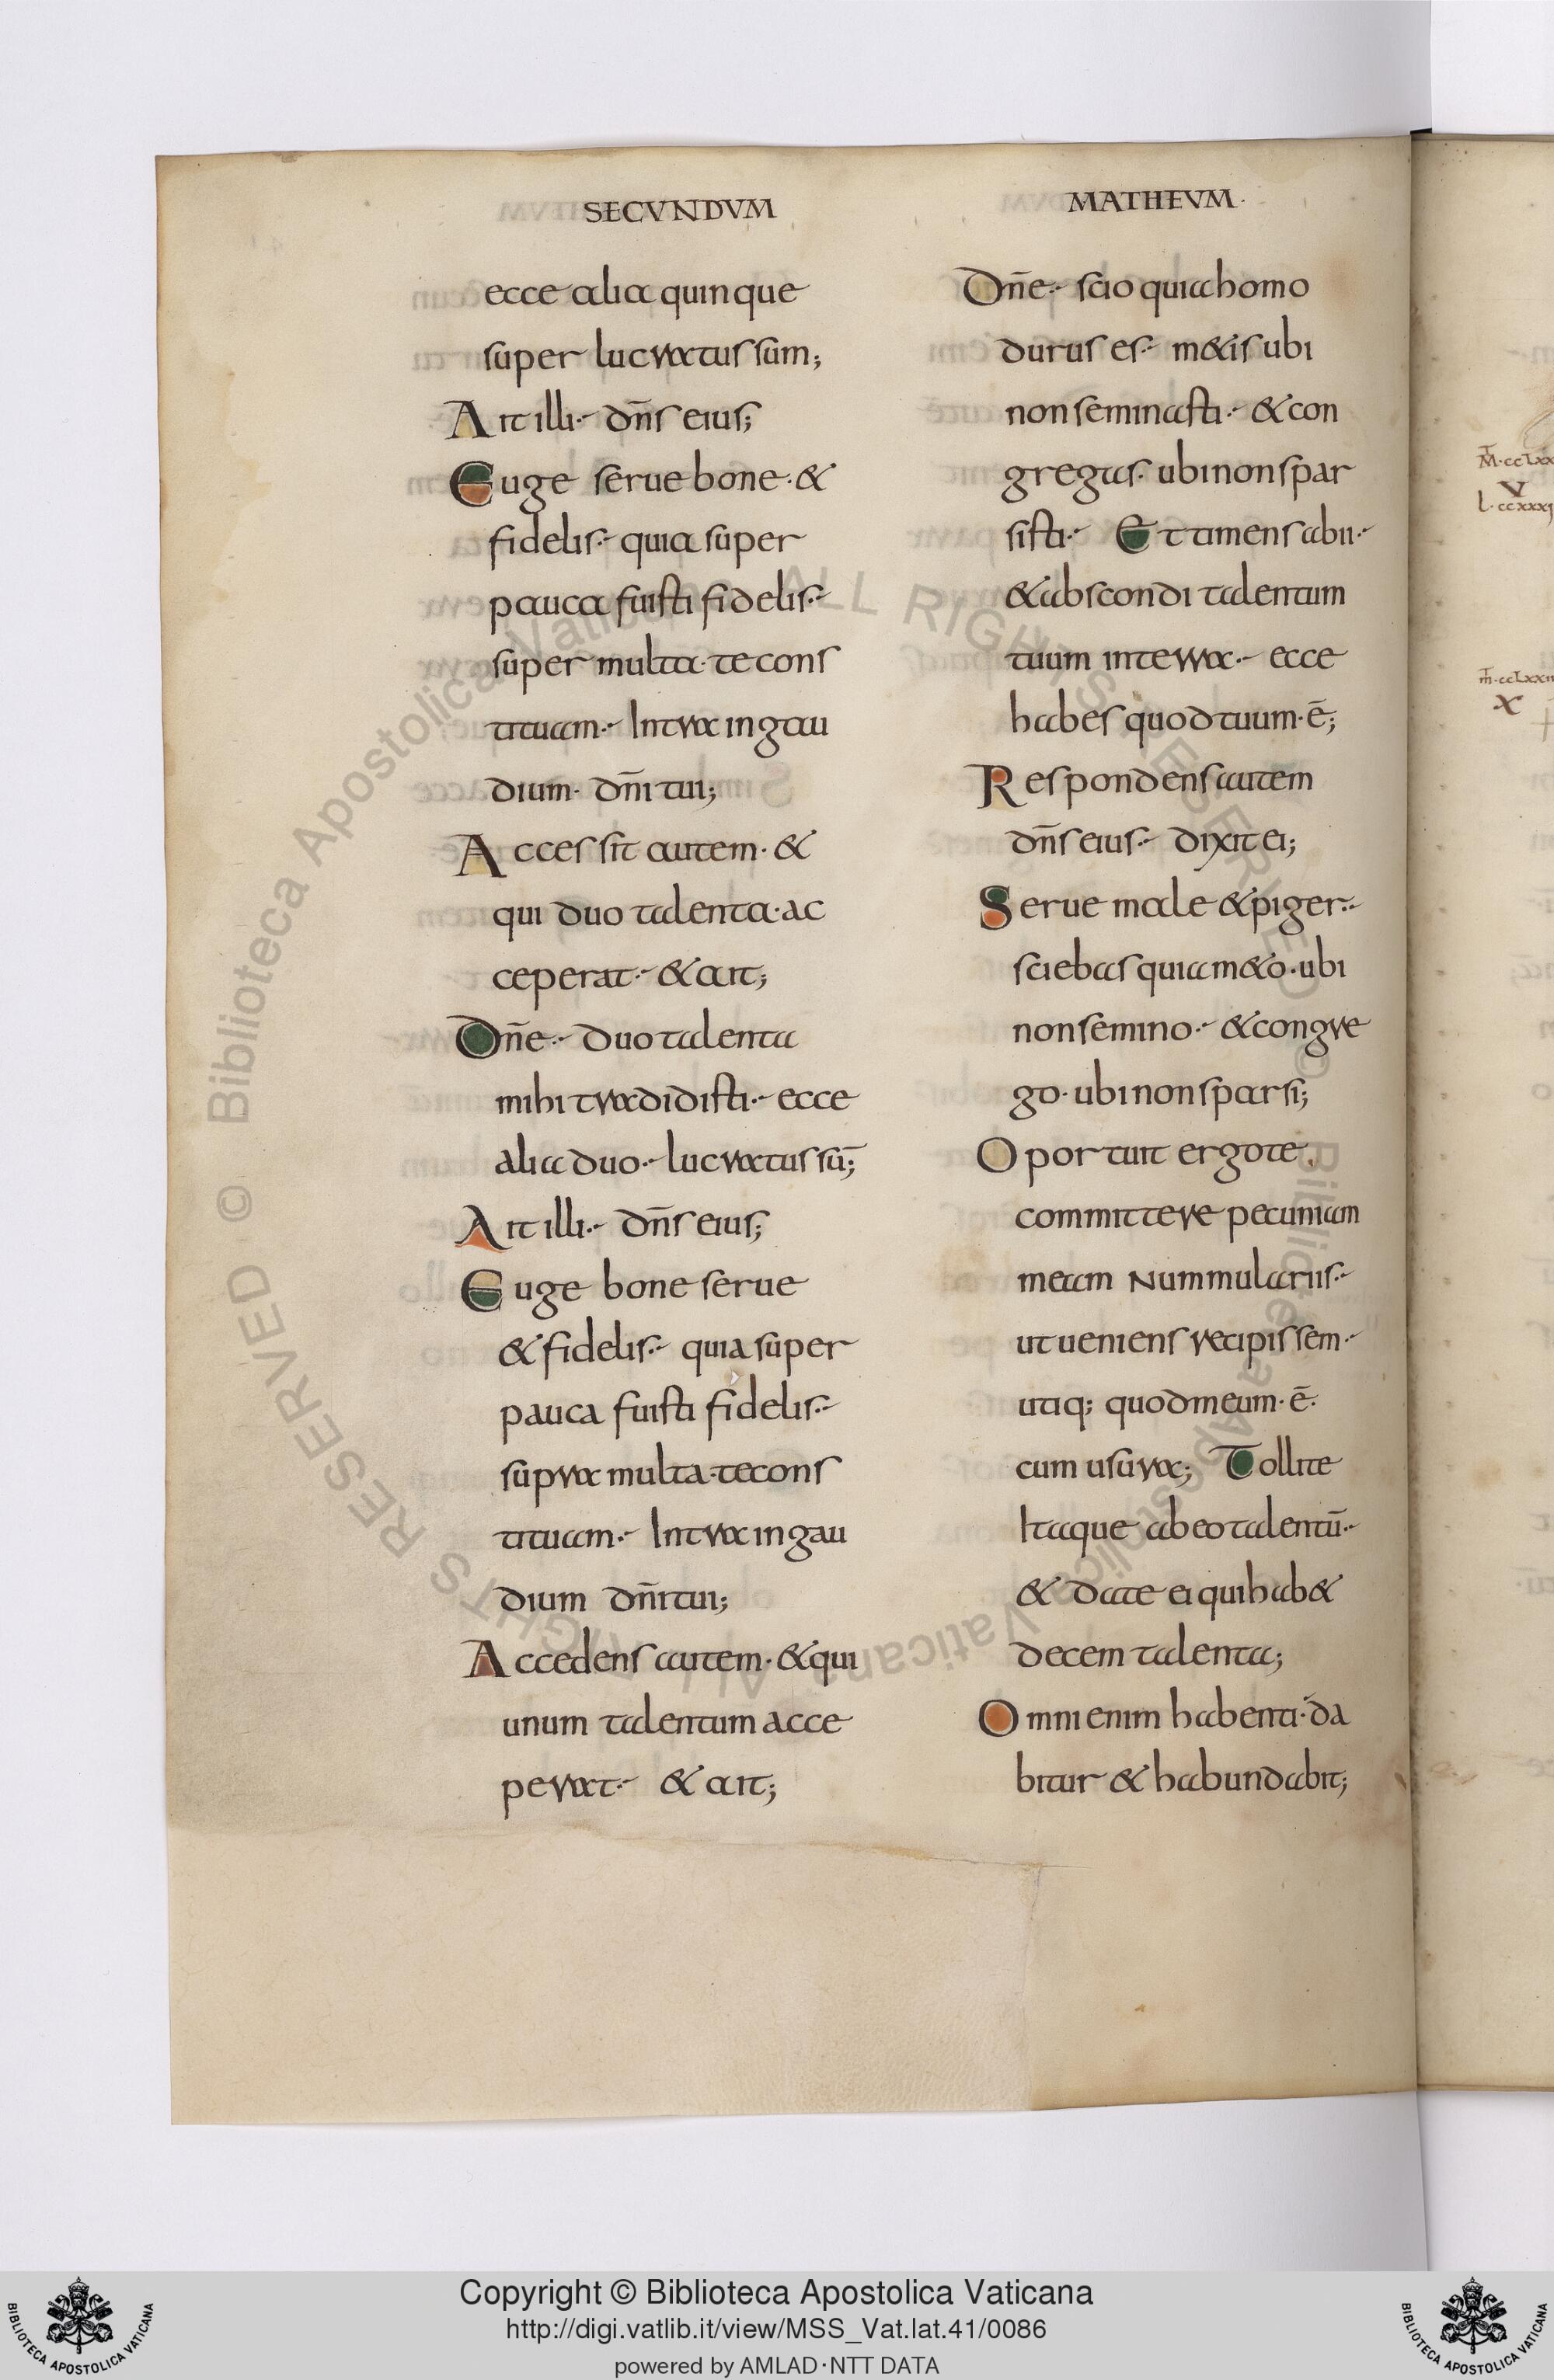 SECVNDVM
ecce alia quinque
super lucratus sum;
Ait illi·- dn̄s eius;
Euge serue bone·&
fidelis·- quia super
pauca fuisti fidelis·-
super multa·te cons
tituam·- Intra in gau
dium· dn̄i tui;
Accessit autem·&
qui duo talenta·ac
ceperat·- & ait;
Dn̄e·- duo talenta
mihi tradidisti·- ecce
alia duo·- lucratus sū;
Ait illi·- dn̄s eius;
Euge bone serue
& fidelis·- quia super
pauca fuisti fidelis·-
supra multa·te cons
tituam·- Intra in gau
dium dn̄i tui;
Accedens autem·& qui
unum talentum acce
perat·- & ait;
MATHEVM·
Dn̄e·- scio quia homo
durus es·- m&is ubi
non seminasti·- & con
gregas· ubi non spar
sisti·- Et timens abii·-
& abscondi talentum
tuum in terra·- ecce
habes quod tuum·ē;
Respondens autem
dn̄s eius·- dixit ei;
Serue male & piger·-
sciebas quia m&o·ubi
non semino·- & congre
go·ubi non sparsi;
Oportuit ergo te
committere pecuniam
meam nummulariis·-
ut ueniens recipissem·-
utiq; quod meum·ē·
cum usura; Tollite
Itaque ab eo talentū·-
& date ei qui hab&
decem talenta;
Omni enim habenti·da
bitur & habundabit;
M̄·ccLxx
V
L·ccxxxj
m̄·ccLxxii
X
© Biblioteca Apostolica Vaticana ALL RIGHTS RESERVED
© Biblioteca Apostolica Vaticana ALL RIGHTS RESERVED
Copyright © Biblioteca Apostolica Vaticana
http://digi.vatlib.it/view/MSS_Vat.lat.41/0086
powered by AMLAD·NTT DATA
BIBLIOTECA APOSTOLICA VATICANA
BIBLIOTECA APOSTOLICA VATICANA